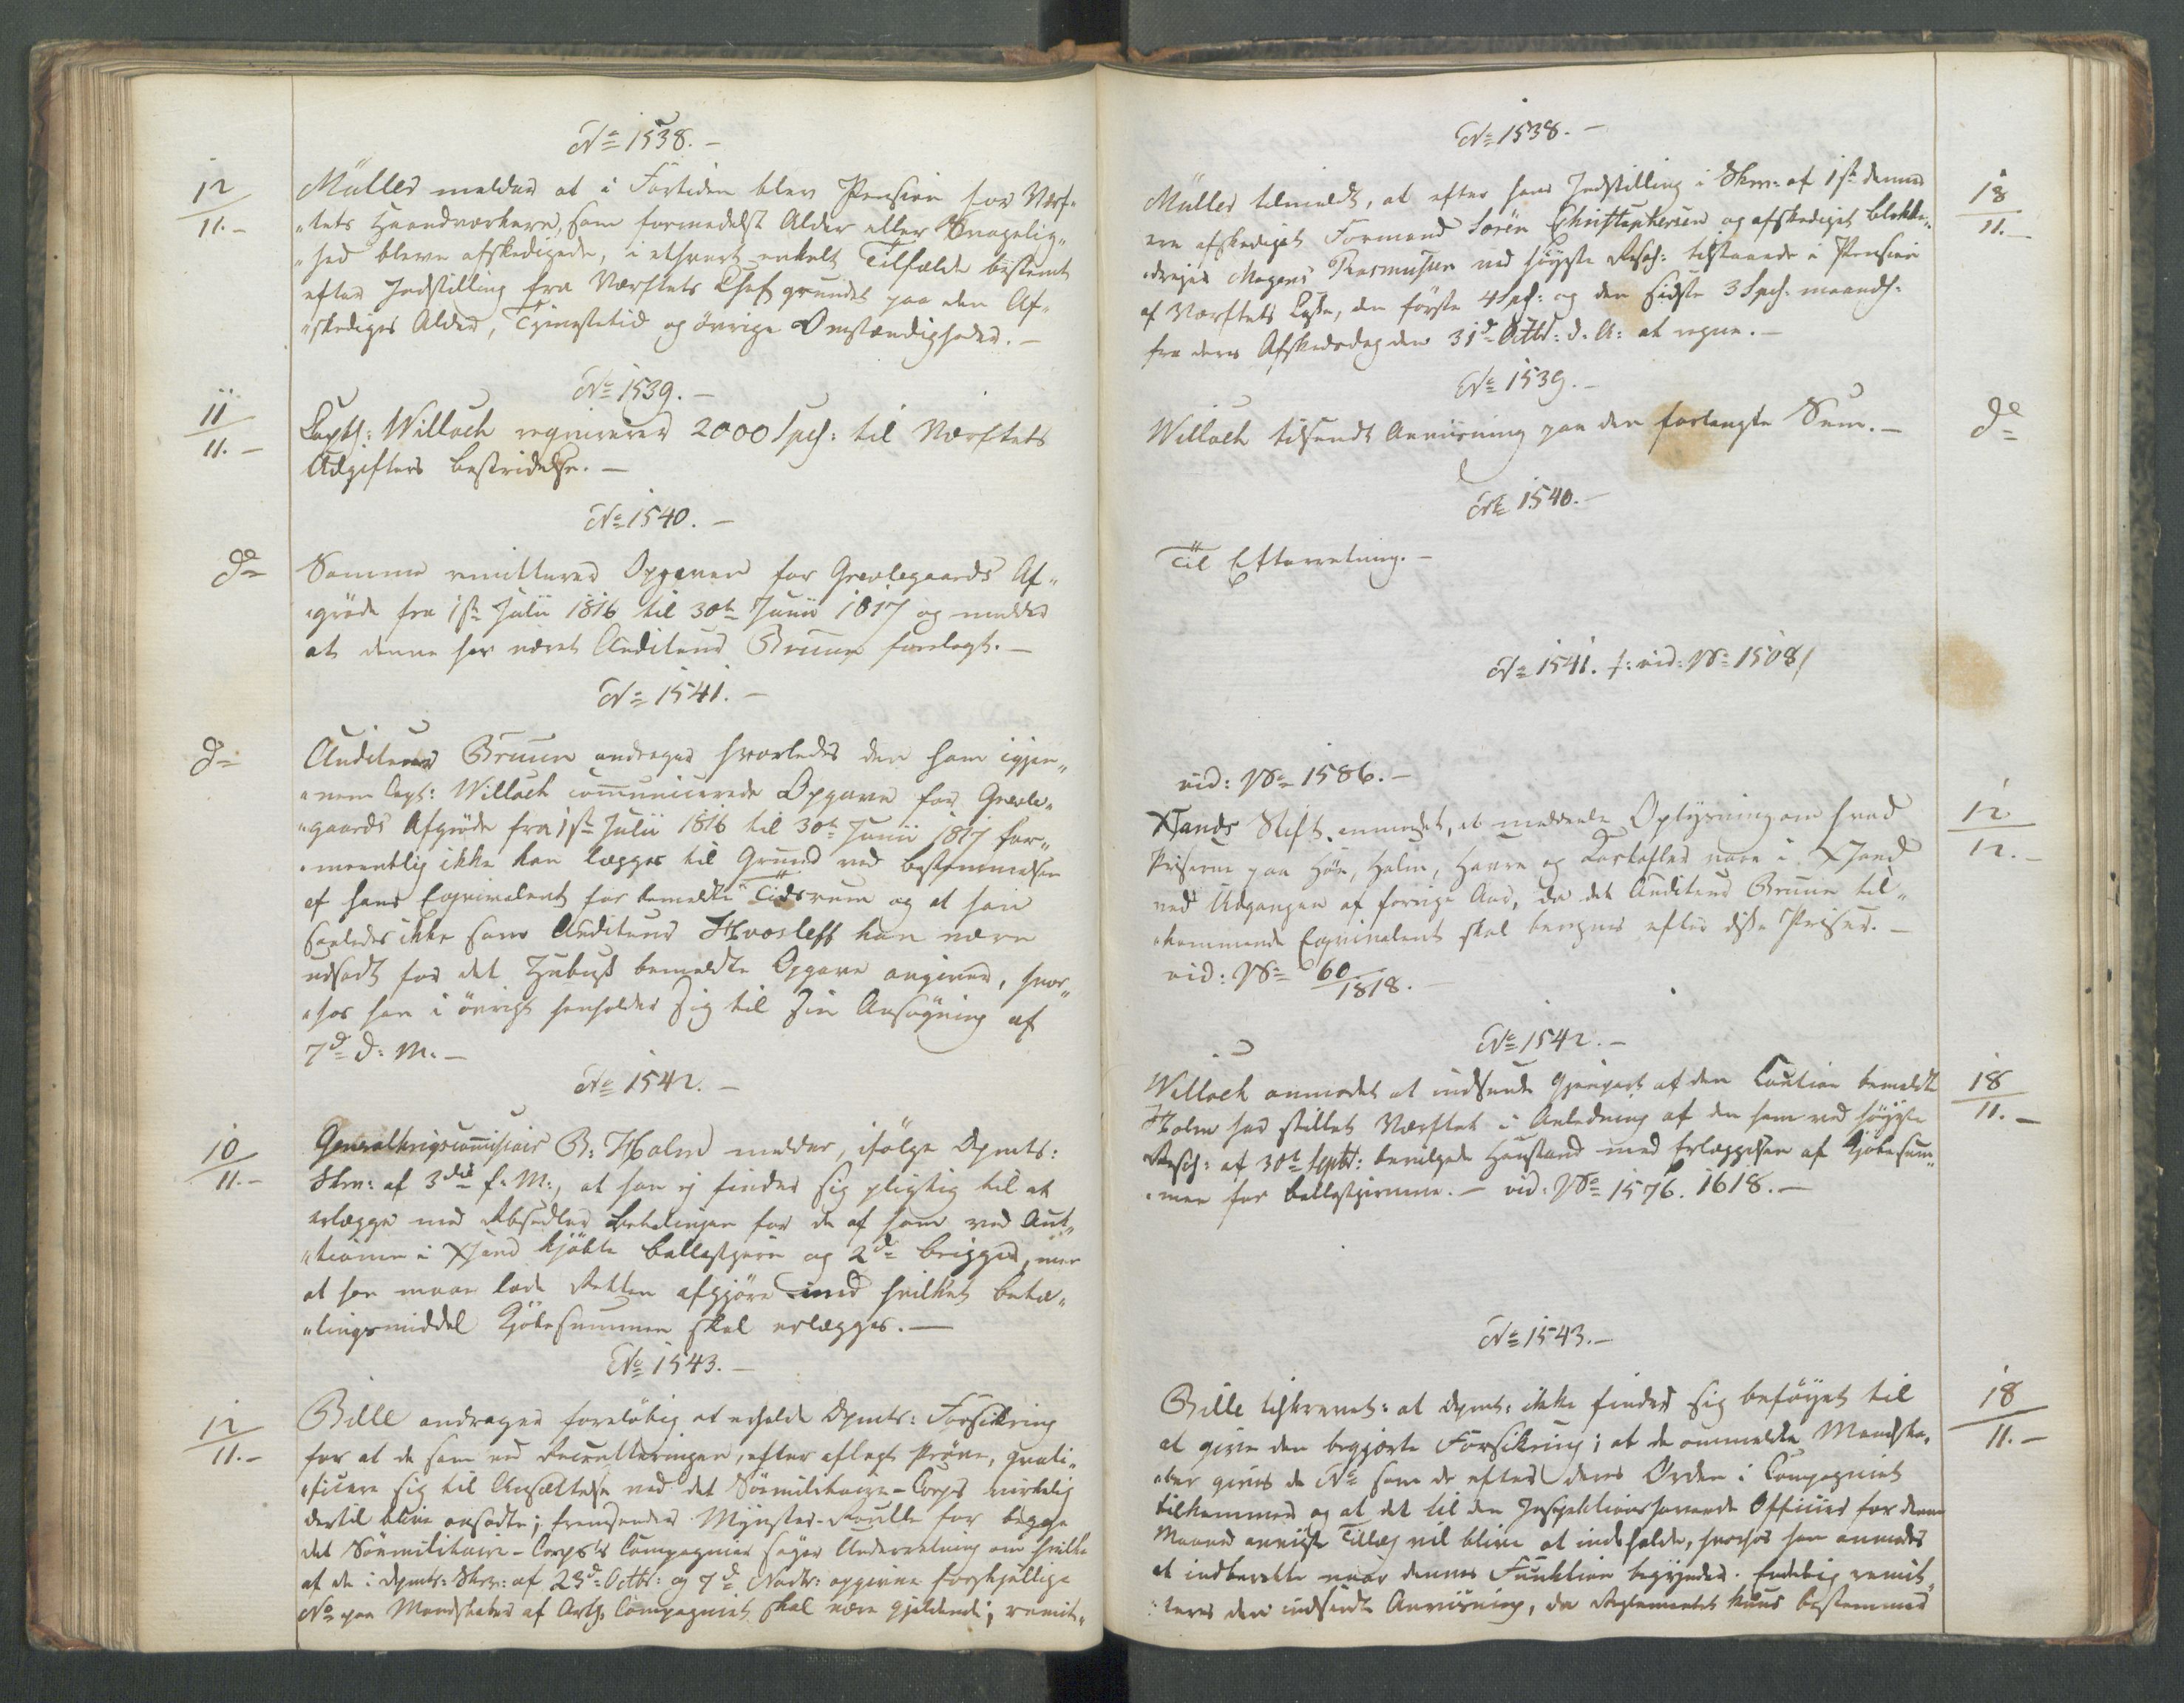 No 1538.-
12
11.-
Müller melder at i Fortiden blev Pension for Værf-
"tets Haandværkere, som formedelst Alder eller Svagelig"
"hed bleve afskedigede, i ethvert enkelt Tilfælde bestemt
efter Indstilling fra Værftets Chef grundet paa den Af"
"skediges Alder, Tjenestetid og övrige Omstændigheder.-
No 1539.-
11
11.-
Capt: Willoch requirerer 2000 Spd: til Værftets
Udgifters bestridelse.-
No 1540.-
do
Samme remitterer Opgaven for Grevlegaards Af"
"gröde fra 1ste Julii 1816 til 30te Junii 1817 og melder
at denne har været Auditeur Bruun forelagt.-
No 1541.-
do
Auditeur Bruun andrager hvorledes den ham igjen"
"nem Capt: Willoch communicerede Opgave for Grevle"
"gaards Afgröde fra 1ste Julii 1816 til 30te Junii 1817 for"
"meentlig ikke kan lægges til Grund ved bestemmelsen
af hans Eqvivalent for bemeldte Tidsrum og at han
saaledes ikke som Auditeur Hvosleff kan være
ansadt for det Zubusk bemeldte Opgave angiver, hvor"
"hos han i övrigt henholder sig til Sin Ansögning af
7de d: M.-
No 1542.-
10
11.-
Generalkrigscommissair B: Holm melder, ifölge Dpmts:
Skr: af 3die f: M:, at han ej finder sig pligtig til at
erlægge med Rbsedler Betalingen for de af ham ved Auc"
"tionen i Xsand kjöbte Ballastjern og 2de Brigger, men
at han maae lade Retten afgjöre med hvilket beta"
"lingsmiddel Kjöbesummen skal erlægges.-
No 1543.-
12
11.-
Bille andrager foreløbig at erholde Dpmts: Forsikring
for at de som ved Recrutteringen, efter aflagt Pröve, qvali"
"ficere sig til Ansættelse ved det Sömilitaire-Corps virkelig
dertil blive ansadte; fremsender Mynster-Roulle for begge
det Sömilitaire-Corps's Compagnier söger Underretning om hvilke
af de i Dpmts: Skr: af 23de Octbr: og 7de Novbr: opgivne forskjellige
No paa Mandskabet af Art: Compagniet skal være gjeldende; remit"
No 1538.-
18
11.-
Müller tilmeldt, at efter hans Indstilling i Skr: af 1ste dennes
ere afskediget Formand Sören Christophersen og afskediget blokke"
"dreier Mogens Rasmussen ved höyeste Resol: tilstaaede i Pension
af Værftets Casse, den förste 4 Spd: og den sidste 3 Spd: maandl:
fra deres Afskedsdag den 31de Octbr: d. A: at regne.-
No 1539.-
do
Willoch tilsendt Anviisning paa den forlangte Sum.-
No 1540.-
Til Efterretning.-
No 1541. /: vid: No 1508/
vid: No 1586.-
12
12.-
Xsands Stift anmodet, at meddeele Oplysning om hvad
Priserne paa Höe, Halm, Havre og Kartofler vare i Xsand
ved Udgangen af forrige Aar, da det Auditeur Bruun til"
"kommende Eqvivalent skal beregnes efter disse Priser.-
vid: No 60/1818.-
No 1542.-
18
11.-
Willoch anmodet at indsende Gjenpart af den Caution bemeldte
Holm har stillet Værftet i Anledning af den ham ved höyeste
Resol: af 30te Septbr: bevilgede Henstand med Erlæggelsen af Kjöbesum"
"men for Ballastjernene.- vid: No 1576. 1618.-
No 1543.-
18
11.-
Bille tilskrevet: at Dpmt: ikke finder sig beføyet til
at give den begjærte Forsikring; at de ommeldte Mandska"
"ber gives de No som de efter deres Orden i Compagniet
tilkommer og at det til den Inspektionshavende Officier for denne
Maaned anviiste Tillæg vil blive at indeholde, hvorhos han anmodes
at indberette naar dennes Funktion begynder. Endelig remit"
"teres den indsendte Anviisning, da Reglementet kuns bestemmer